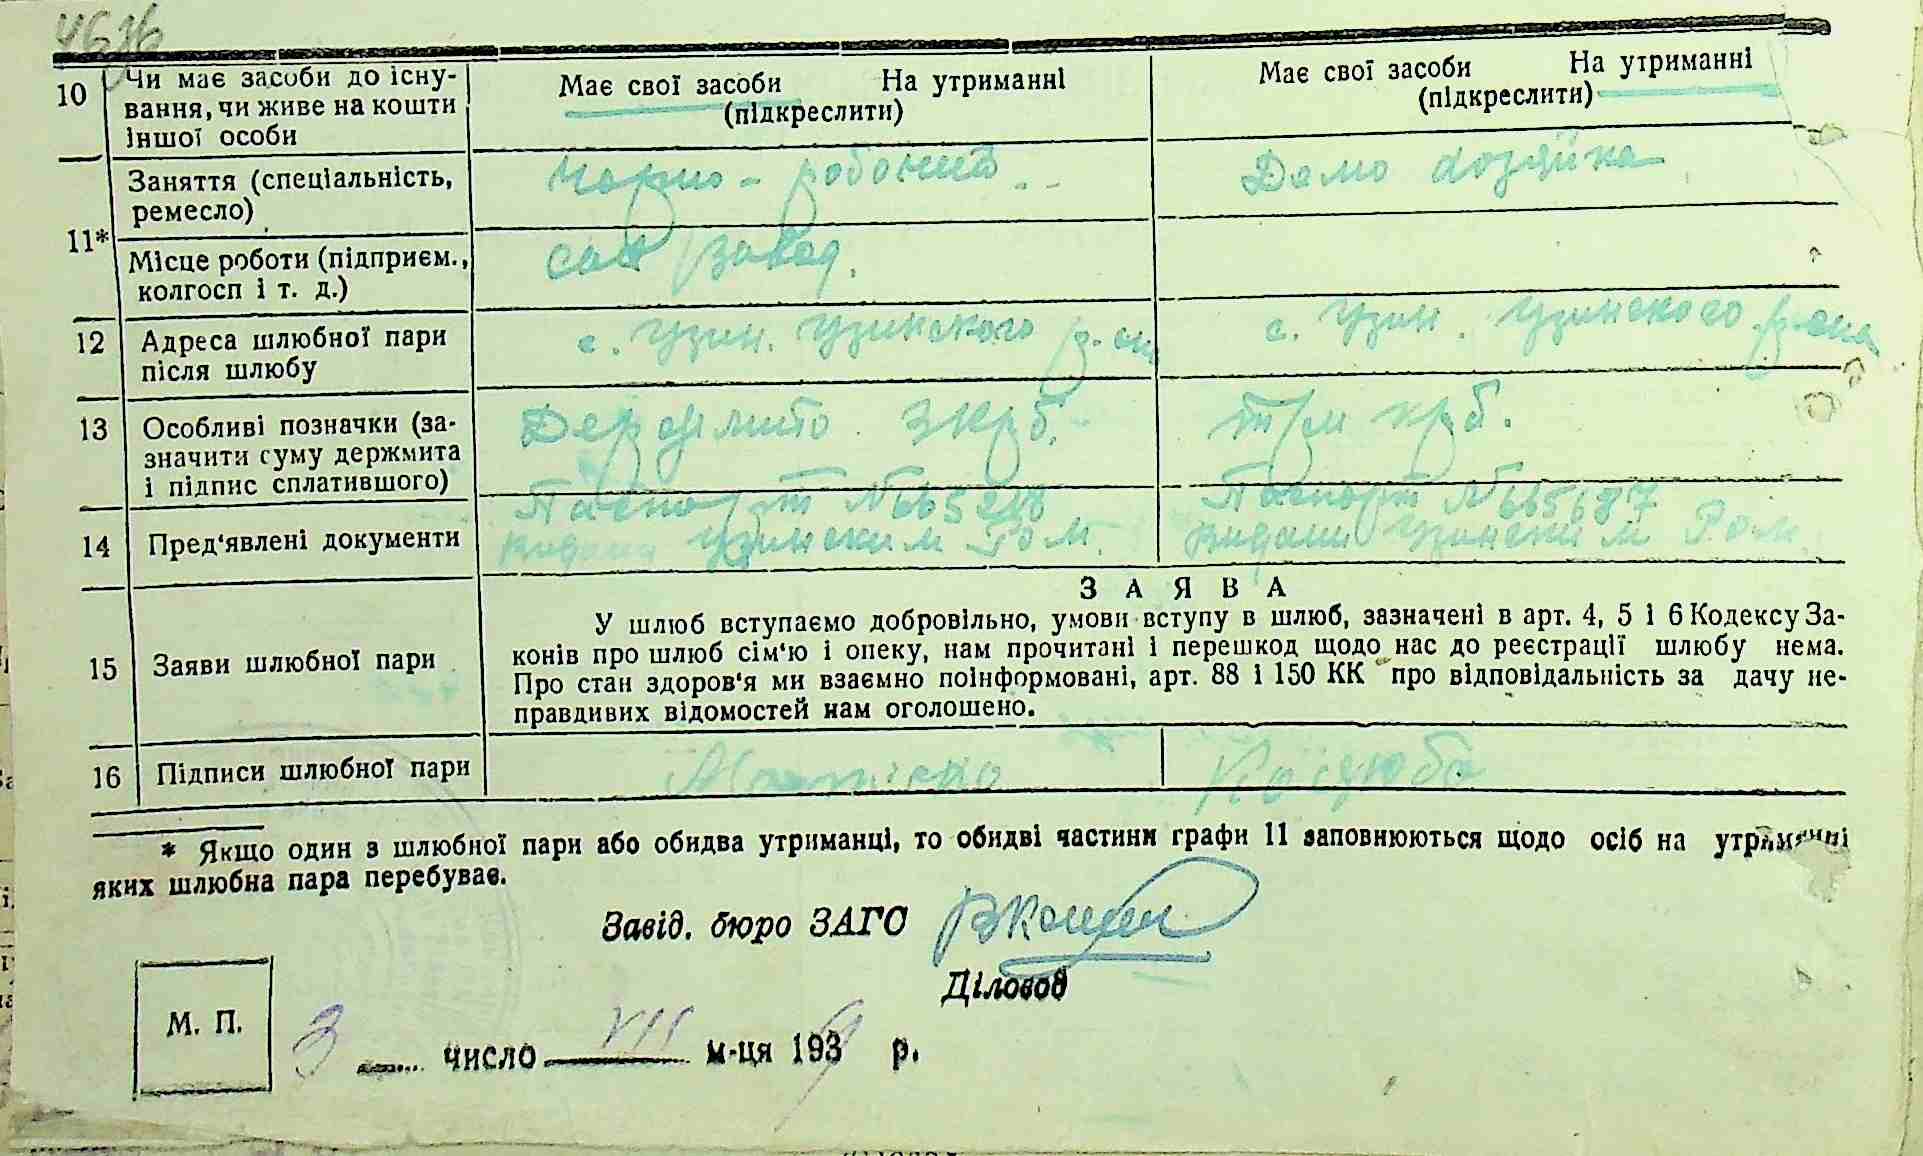 10 Чи має засоби до існу-
вання, чи живе на кошти
іншої особи
Має свої засоби На утриманні
(підкреслити)
Має свої засоби На утриманні
(підкреслити)
11* Заняття (спеціальність,
ремесло)
Чорно-робочий
Домо хозяйка
Місце роботи (підприєм.,
колгосп і т. д.)
сах завод.
12 Адреса шлюбної пари
після шлюбу
с. Узин. Узинского р-на
с. Узин. Узинского р-она
13 Особливі позначки (за-
значити суму держмита
і підпис сплатившого)
Держмито 3 крб.
три крб.
14 Пред'явлені документи
Паспорт №
Узинским Р.о.м.
Паспорт № 665687
видани Узинским Р.о.м.
З А Я В А
15 Заяви шлюбної пари
У шлюб вступаємо добровільно, умови вступу в шлюб, зазначені в арт. 4, 5 і 6 Кодексу За-
конів про шлюб сім'ю і опеку, нам прочитані і перешкод щодо нас до реєстрації шлюбу нема.
Про стан здоров'я ми взаємно поінформовані, арт. 88 і 150 КК про відповідальність за дачу не-
правдивих відомостей нам оголошено.
16 Підписи шлюбної пари
Коцюба
* Якщо один з шлюбної пари або обидва утриманці, то обидві частини графи 11 заповнюються щодо осіб на утриманні
яких шлюбна пара перебуває.
Завід. бюро ЗАГС
Діловод
М. П.
3 число VII м-ця 1939 р.